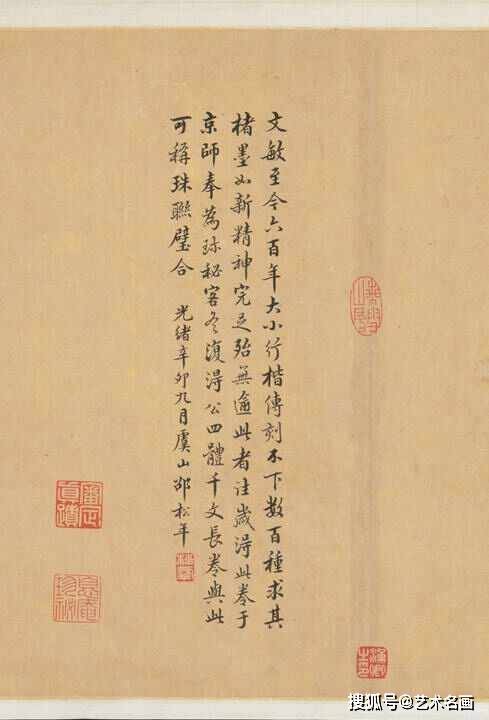 文敏至今六百年大小行楷傳刻不下數百種求其
楮墨如新精神完足殆無逾此者往歲得此卷于
京師奉為珍秘客冬復得公四體千文長卷與此
可稱珠聯璧合
光緒辛卯九月虞山邵松年
審定真蹟
搜狐号@艺术名画